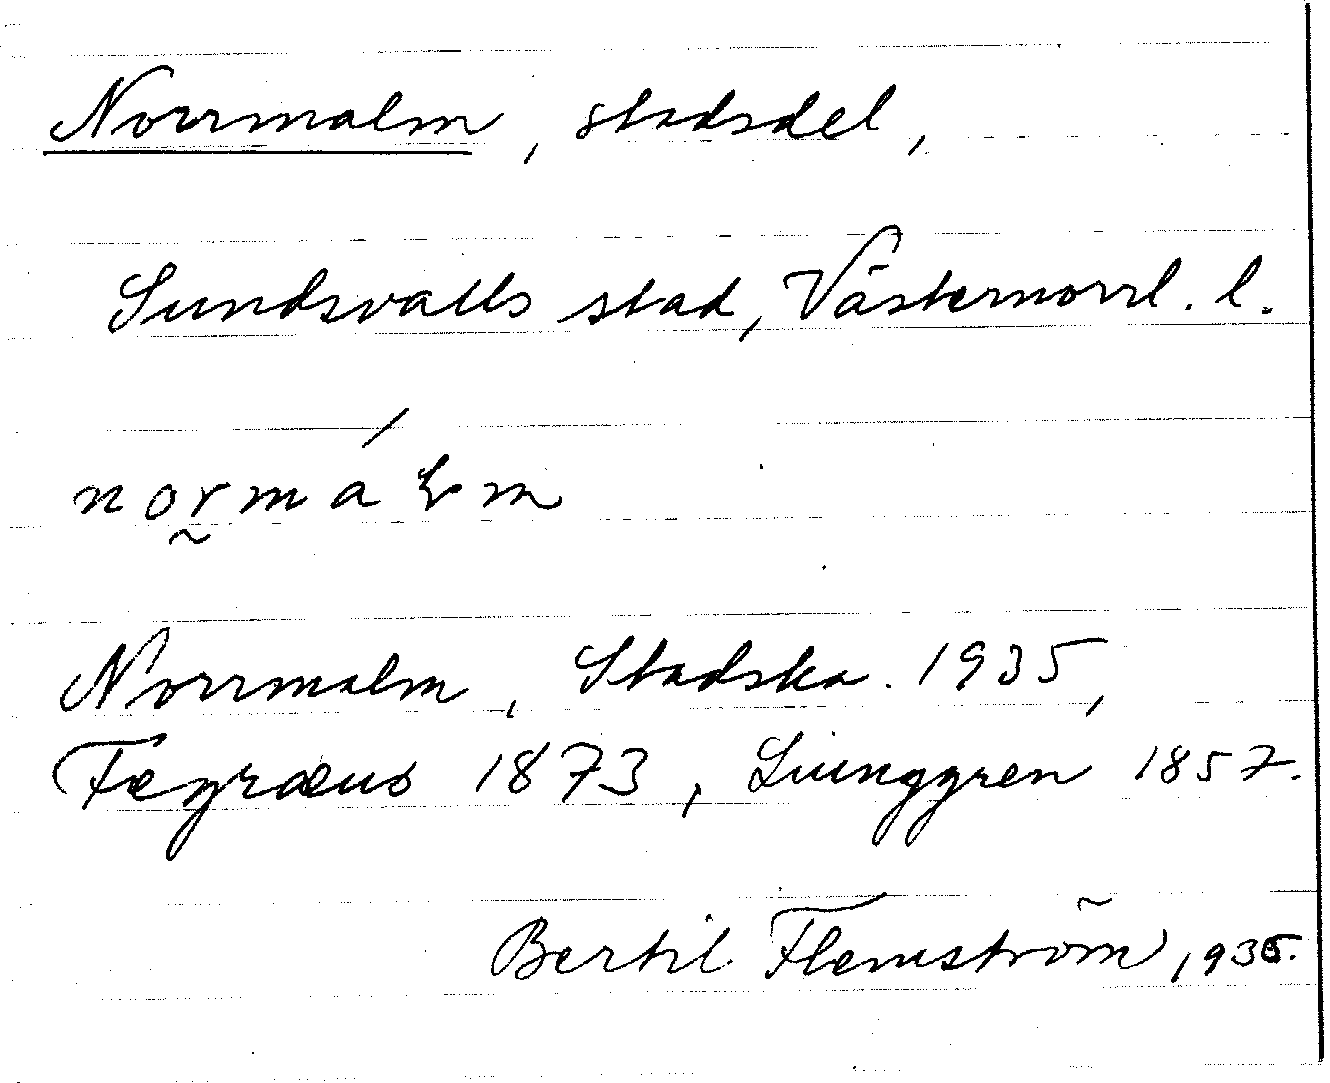 Norrmalm, stadsdel,
Sundsvalls stad, Västernorrl. l.
Norrmalm, Stadska. 1935,
Fægræus 1873, Liunggren 1857.
Bertil Flemström, 1935.